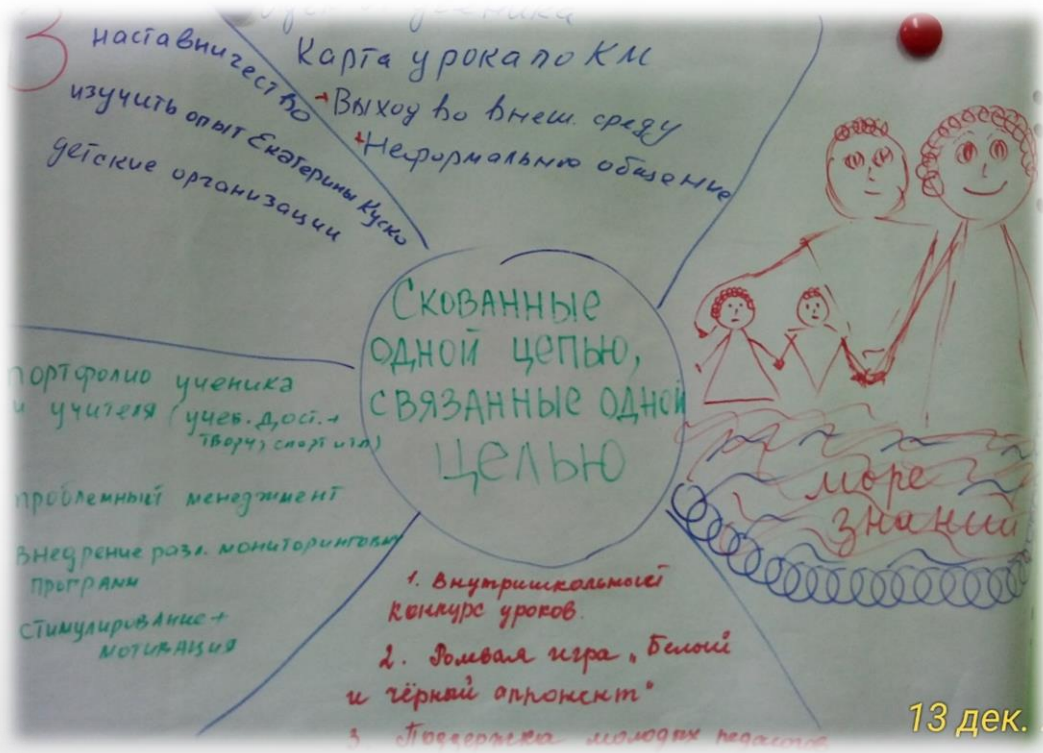 3
наставничество
изучить опыт Екатерины Куско
детские организации
ученика
Карта урока по КМ
+ Выход во внеш. среду
+ Неформальню общение
Скованные
одной цепью,
связанные одной
целью
портфолио ученика
и учителя (учеб. дост. +
творч, спорт и тп)
проблемный менеджмент
внедрение разл. мониторинговых
программ
стимулирование +
мотивация
море
знаний
1. Внутришкольный
конкурс уроков.
2. Ролевая игра „Белый
и чёрный аппонент"
3. Поддержка молодых педагогов
13 дек.